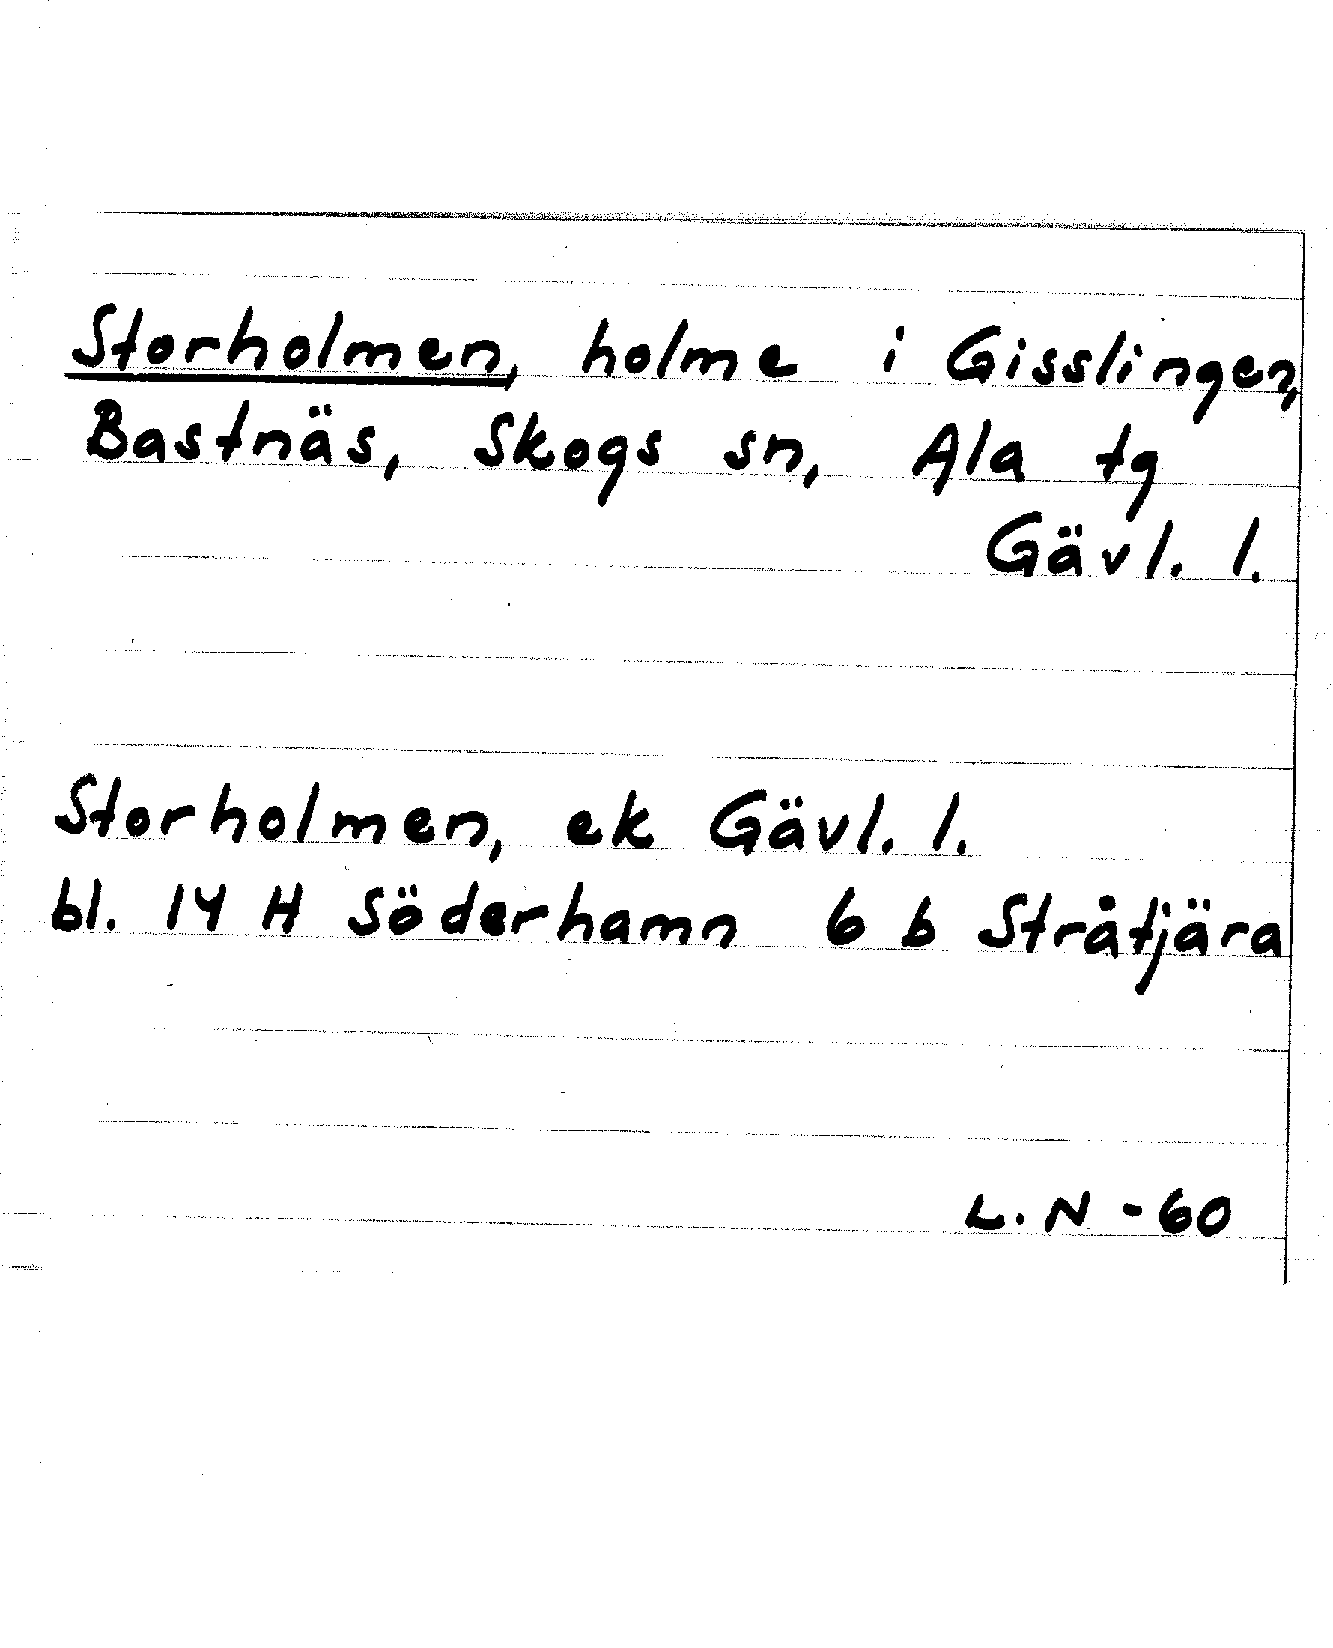 Storholmen, holme i Gisslingen,
Bastnäs, Skogs sn, Ala tg
Gävl. l.
Storholmen, ek Gävl. l.
bl. 14 H Söderhamn 6 b Stråtjära
L. N - 60